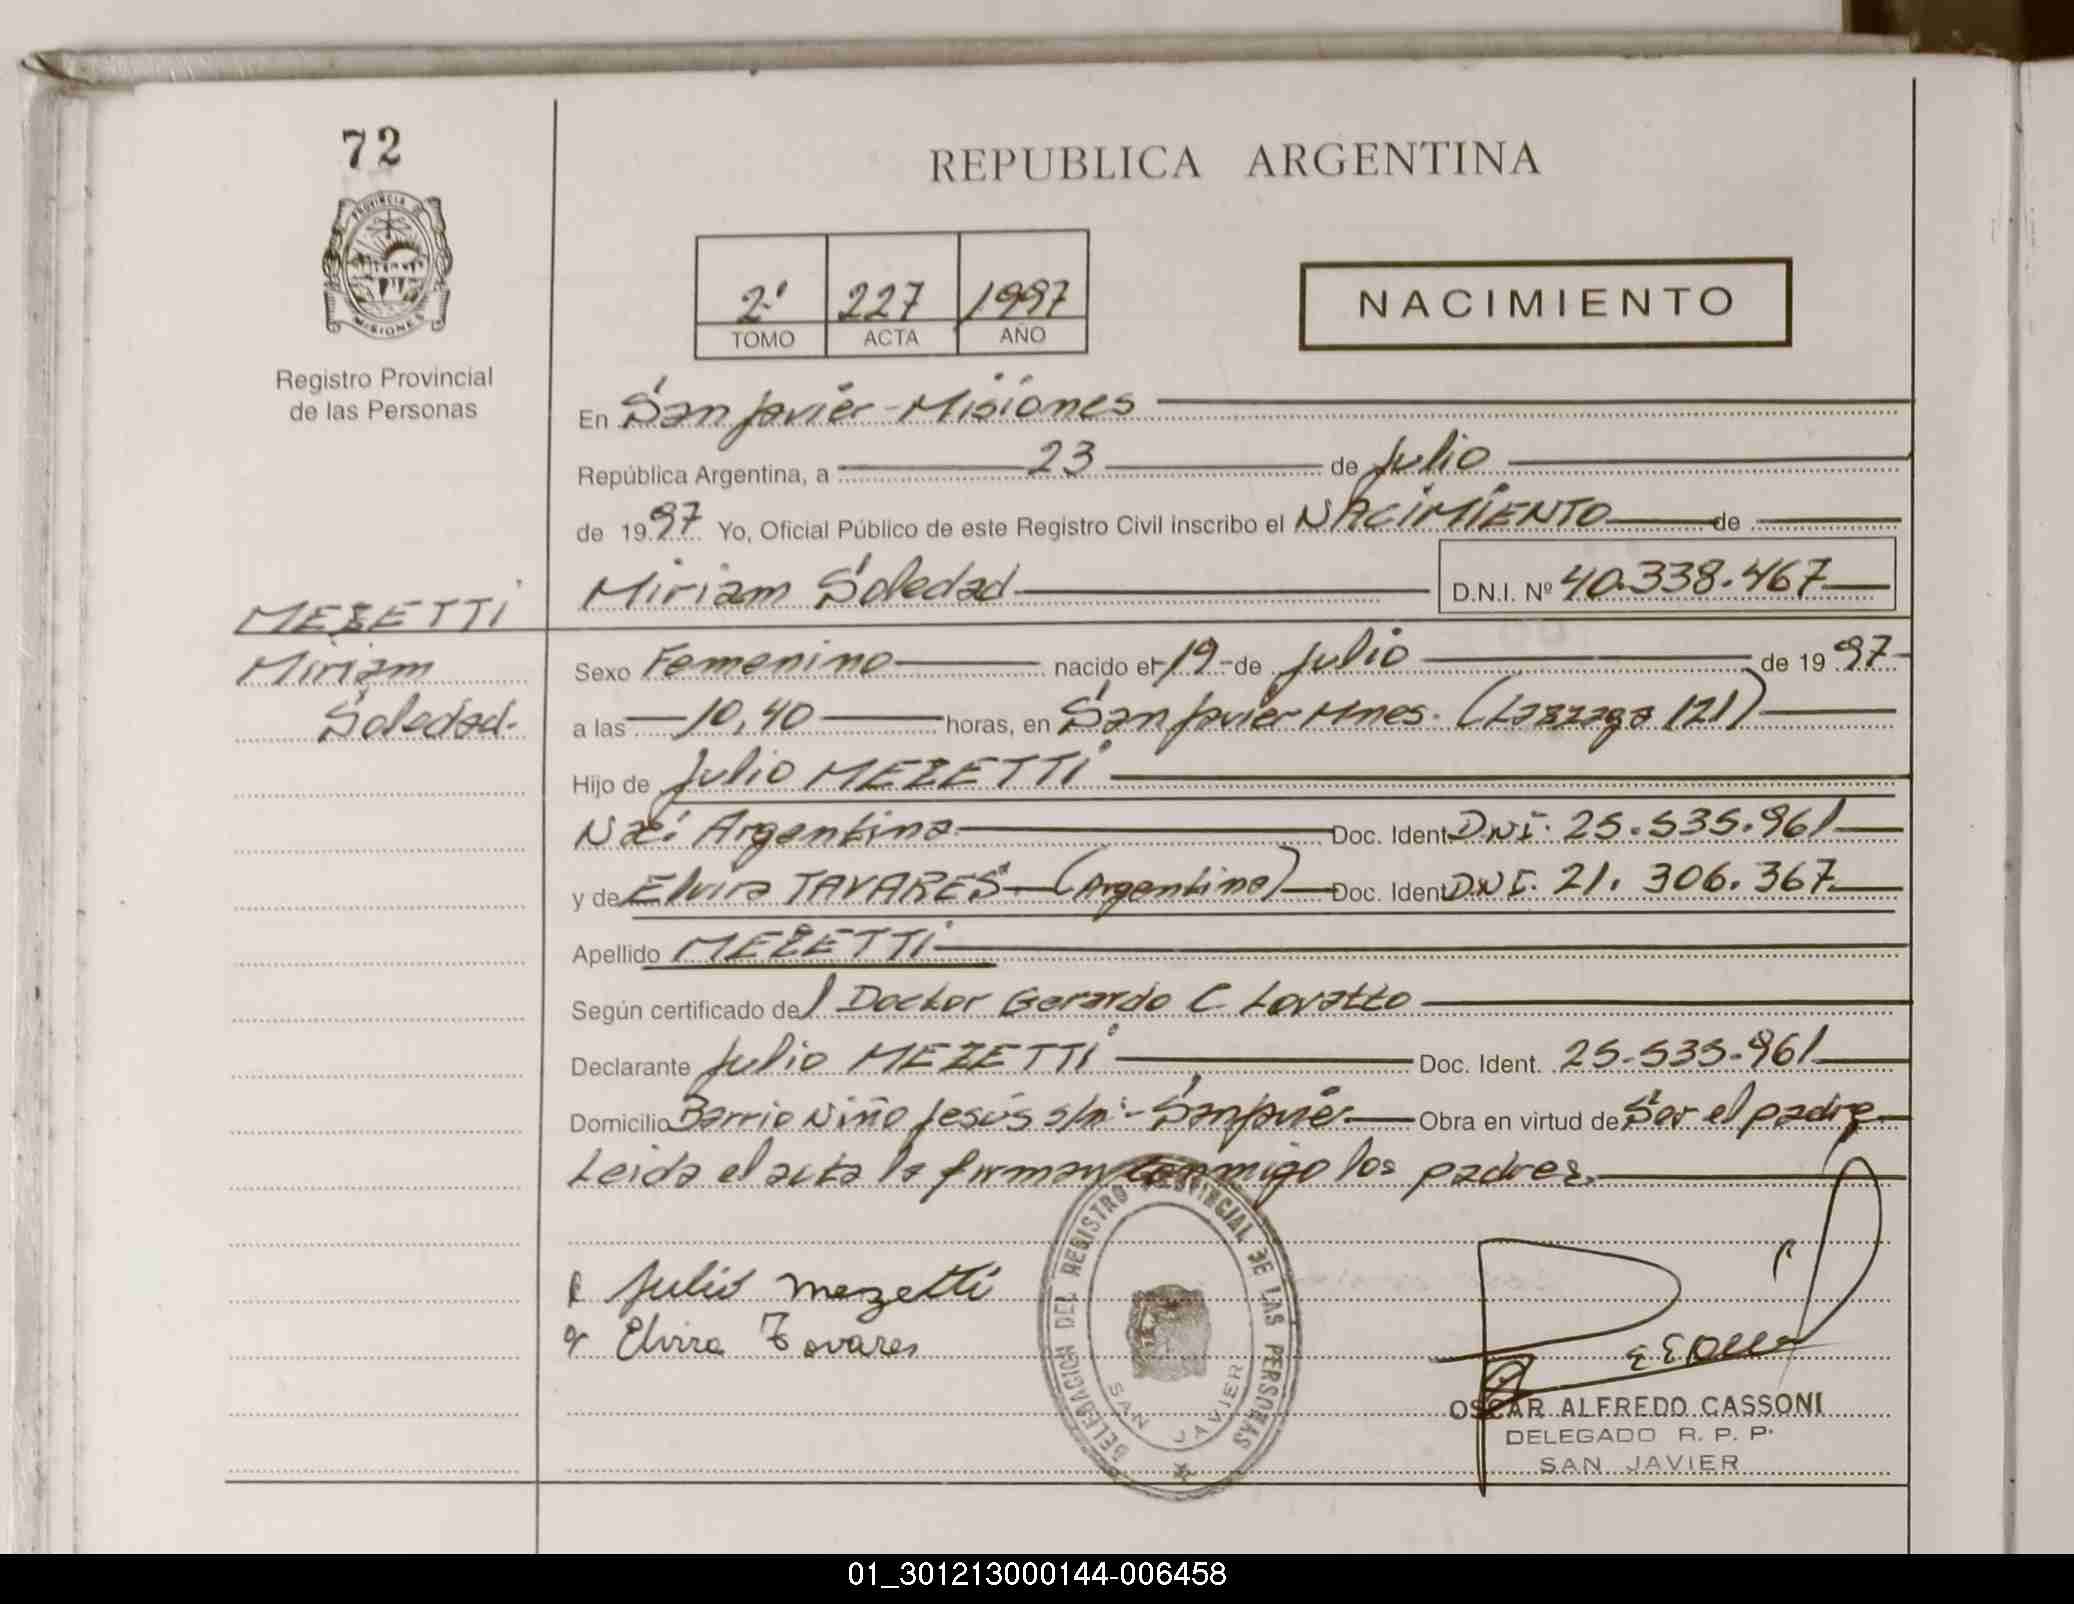 72
REPUBLICA ARGENTINA
PROVINCIA DE
MISIONES
Registro Provincial
de las Personas
2º 227 1997
TOMO ACTA AÑO
NACIMIENTO
En San Javier - Misiones
República Argentina, a 23 de Julio
de 1997 Yo, Oficial Público de este Registro Civil inscribo el NACIMIENTO de
Miriam Soledad D.N.I. Nº 40.338.467
MEZETTI
Miriam
Soledad.
Sexo Femenino nacido el 19 de Julio de 1997
a las 10,40 horas, en San Javier Mnes. (Lazzaga 121)
Hijo de Julio MEZETTI
Nac: Argentina Doc. Ident. DNI. 25.535.961
y de Elvira TAVARES (Argentina) Doc. Ident. DNI. 21.306.367
Apellido MEZETTI
Según certificado del Doctor Gerardo C. Lovatto
Declarante Julio MEZETTI Doc. Ident. 25.535.961
Domicilio Barrio Niño Jesús s/nº - San Javier Obra en virtud de Ser el padre
Leida el acta la firman conmigo los padres.
Julio Mezetti
Elvira Tavares
DELEGACION DEL REGISTRO PROVINCIAL DE LAS PERSONAS
SAN JAVIER
OSCAR ALFREDO CASSONI
DELEGADO R. P. P.
SAN JAVIER
01_301213000144-006458